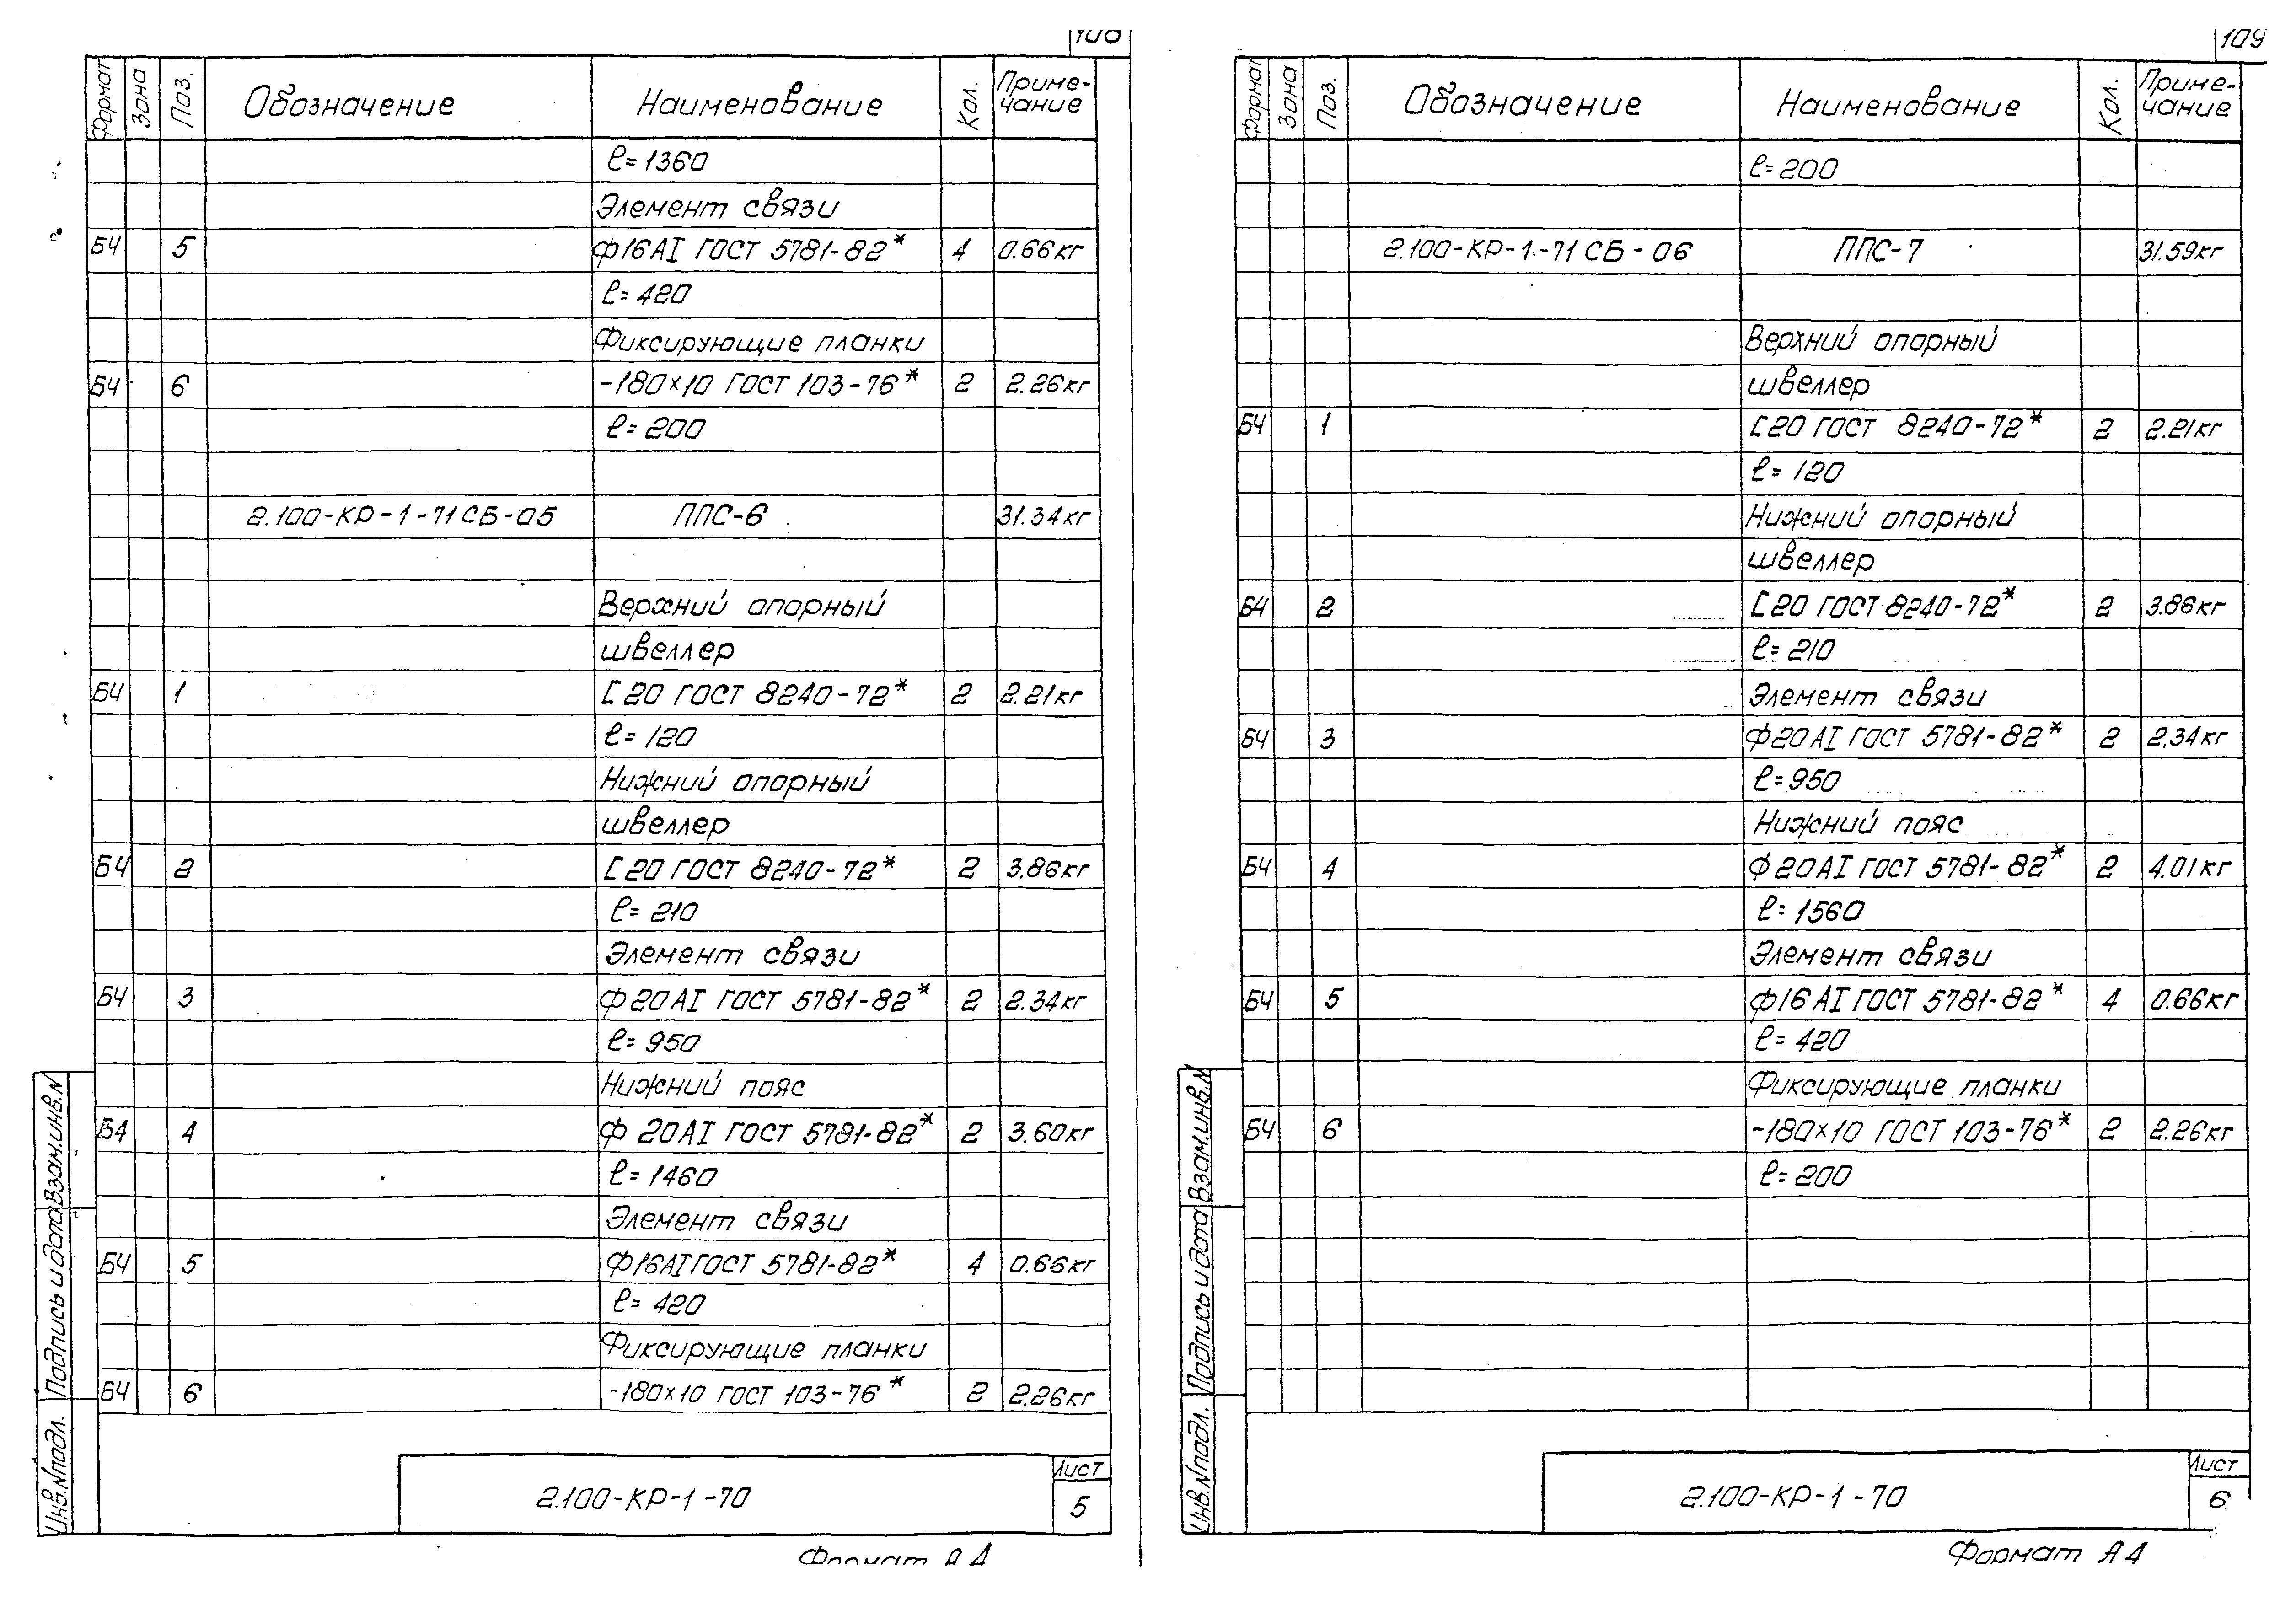 108
Формат Зона Поз. Обозначение Наименование Кол. Приме-
чание
ℓ=1360
Элемент связи
БЧ 5 ф16АI ГОСТ 5781-82* 4 0.66кг
ℓ=420
Фиксирующие планки
БЧ 6 -180×10 ГОСТ 103-76* 2 2.26кг
ℓ=200
2.100-КР-1-71СБ-05 ППС-6 31.34кг
Верхний опорный
швеллер
БЧ 1 [20 ГОСТ 8240-72* 2 2.21кг
ℓ=120
Нижний опорный
швеллер
БЧ 2 [20 ГОСТ 8240-72* 2 3.86кг
ℓ=210
Элемент связи
БЧ 3 ф20АI ГОСТ 5781-82* 2 2.34кг
ℓ=950
Нижний пояс
БЧ 4 ф 20АI ГОСТ 5781-82* 2 3.60кг
ℓ=1460
Элемент связи
БЧ 5 ф16АI ГОСТ 5781-82* 4 0.66кг
ℓ=420
Фиксирующие планки
БЧ 6 -180×10 ГОСТ 103-76* 2 2.26кг
Инв.Nподл. Подпись и дата Взам.инв.N
2.100-КР-1-70
Лист
5
Формат А4
109
Формат Зона Поз. Обозначение Наименование Кол. Приме-
чание
ℓ=200
2.100-КР-1-71СБ-06 ППС-7 31.59кг
Верхний опорный
швеллер
БЧ 1 [20 ГОСТ 8240-72* 2 2.21кг
ℓ=120
Нижний опорный
швеллер
БЧ 2 [20 ГОСТ 8240-72* 2 3.86кг
ℓ=210
Элемент связи
БЧ 3 ф20АI ГОСТ 5781-82* 2 2.34кг
ℓ=950
Нижний пояс
БЧ 4 ф20АI ГОСТ 5781-82* 2 4.01кг
ℓ=1560
Элемент связи
БЧ 5 ф16АI ГОСТ 5781-82* 4 0.66кг
ℓ=420
Фиксирующие планки
БЧ 6 -180×10 ГОСТ 103-76* 2 2.26кг
ℓ=200
Инв.Nподл. Подпись и дата Взам.инв.N
2.100-КР-1-70
Лист
6
Формат А4